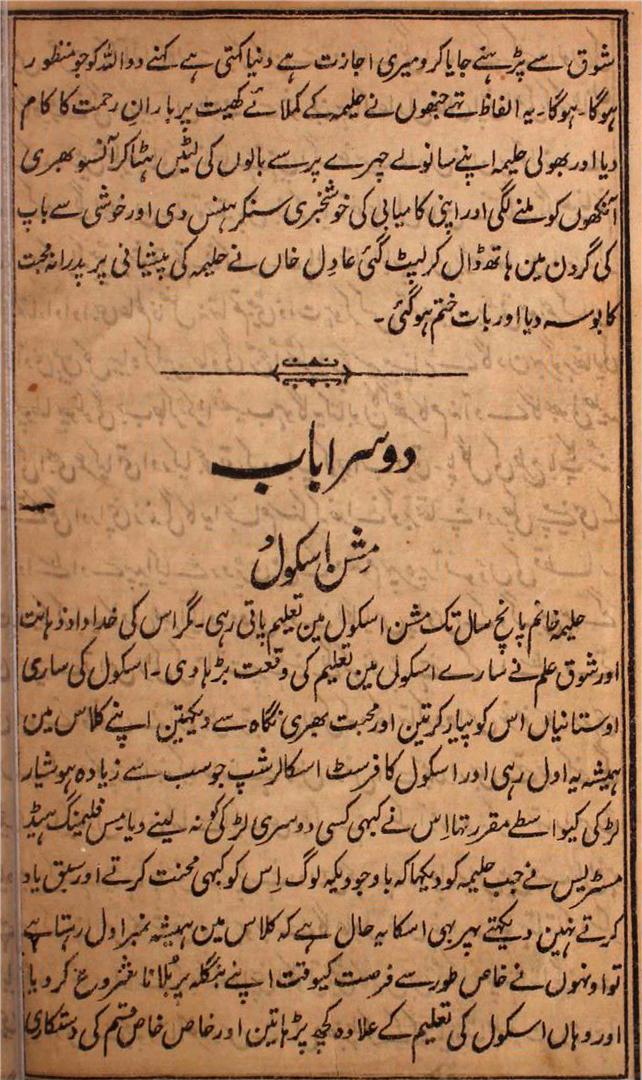 شوق سے پڑہنے جایا کرو میری اجازت ہے دنیا کہتی ہے کہنے دو اللہ کو جو منظور
ہوگا۔ ہوگا۔ یہ الفاظ تھے جنھوں نے حلیمہ کے کملائے کھیت پر باران رحمت کا کام
دیا اور بھولی حلیمہ اپنے سانولے چہرے پر سے بالوں کی لٹیں ہٹا کر آنسو بھری
آنکھوں کو ملنے لگی اور اپنی کامیابی کی خوشخبری سنکر ہنس دی اور خوشی سے باپ
کی گردن مین ہاتھ ڈال کر لپٹ گئی عادل خاں نے حلیمہ کی پیشانی پر پدرانہ محبت
کا بوسہ دیا اور بات ختم ہو گئی۔
دوسرا باب
مشن اسکول
حلیمہ خانم پانچ سال تک مشن اسکول مین تعلیم پاتی رہی۔ مگر اس کی خداداد ذہانت
اور شوق علم نے سارے اسکول مین تعلیم کی وقعت بڑہا دی۔ اسکول کی ساری
اوستانیاں اس کو پیار کرتین اور محبت بھری نگاہ سے دیکہتین اپنے کلاس مین
ہمیشہ یہ اول رہی اور اسکول کا فرسٹ اسکالرشپ جو سب سے زیادہ ہوشیار
لڑکی کیواسطے مقرر تہا اِس نے کبہی کسی دوسری لڑکی کو نہ لینے دیا مس فلیمنگ ہیڈ
مسٹریس نے جب حلیمہ کو دیکہا کہ باوجودیکہ لوگ اِس کو کبہی محنت کرتے اور سبق یاد
کرتے نہین دیکہتے پہر بہی اسکا یہ حال ہے کہ کلاس مین ہمیشہ نمبر اول رہتا ہے
تو اونہوں نے خاص طور سے فرصت کیوقت اپنے بنگلہ پر بُلانا شروع کر دیا
اور وہاں اسکول کی تعلیم کے علاوہ کچہ پڑہاتین اور خاص خاص قسم کی دستکاری